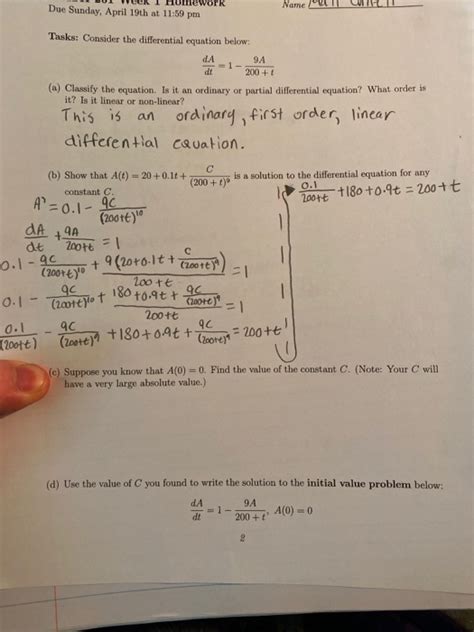 Week 1 Homework
Name
Due Sunday, April 19th at 11:59 pm
Tasks: Consider the differential equation below:
dA/dt = 1 − 9A/(200 + t)
(a) Classify the equation. Is it an ordinary or partial differential equation? What order is
it? Is it linear or non-linear?
This is an ordinary, first order, linear
differential equation.
(b) Show that A(t) = 20 + 0.1t + C/(200 + t)⁹ is a solution to the differential equation for any
constant C.
A' = 0.1 - 9C/(200+t)¹⁰
dA/dt + 9A/(200+t) = 1
0.1 - 9C/(200+t)¹⁰ + 9(20+0.1t + C/(200+t)⁹)/(200+t) = 1
0.1 - 9C/(200+t)¹⁰ + (180+0.9t + 9C/(200+t)⁹)/(200+t) = 1
0.1/(200+t) - 9C/(200+t)⁹ + 180+0.9t + 9C/(200+t)⁹ = 200+t
0.1/(200+t) + 180+0.9t = 200+t
(c) Suppose you know that A(0) = 0. Find the value of the constant C. (Note: Your C will
have a very large absolute value.)
(d) Use the value of C you found to write the solution to the initial value problem below:
dA/dt = 1 − 9A/(200 + t), A(0) = 0
2